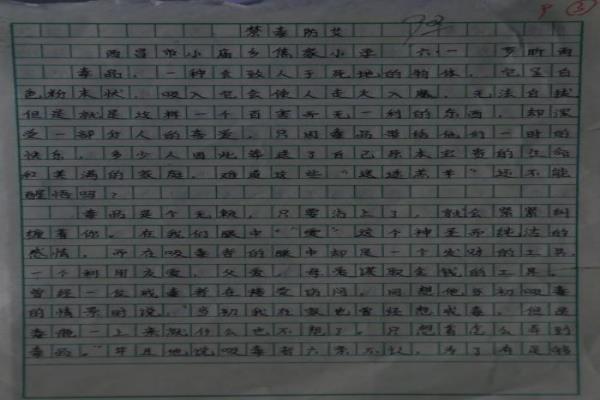 禁毒防艾
西昌市小庙乡焦家小学 六一 罗昕雨
毒品,一种直致人于死地的物体,它呈白
色粉末状,吸入它会使人走火入魔,无法自拔
但是就是这样一个百害而无一利的东西,却深
受一部分人的喜爱,只因毒品带给他们一时的
快乐,多少人因此葬送了自己原本宝贵的生命
和美满的家庭,难道这些“迷途羔羊”还不能
醒悟吗?
毒品是个无赖,只要沾上了,就会紧紧纠
缠着你。在我们眼中“爱”这个神圣而纯洁的
感情,而在吸毒者的眼中却是一个发财的工具,
一个利用友爱,父爱,母爱谋取金钱的工具。
曾经一位戒毒者在接受访问,问想他当初吸毒
的情景时说,“当初我在家也曾经想戒毒,但是
毒瘾一上来就什么也不想了,只想着怎么弄到
毒品。”并且他说吸毒者六亲不认,为了有足够